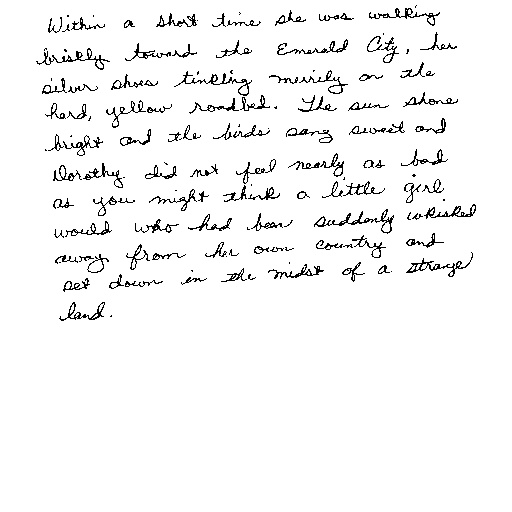 Within a short time she was walking
briskly toward the Emerald City, her
silver shoes tinkling merrily on the
hard, yellow roadbed. The sun shone
bright and the birds sang sweet and
Dorothy did not feel nearly as bad
as you might think a little girl
would who had been suddenly whisked
away from her own country and
set down in the midst of a strange
land.